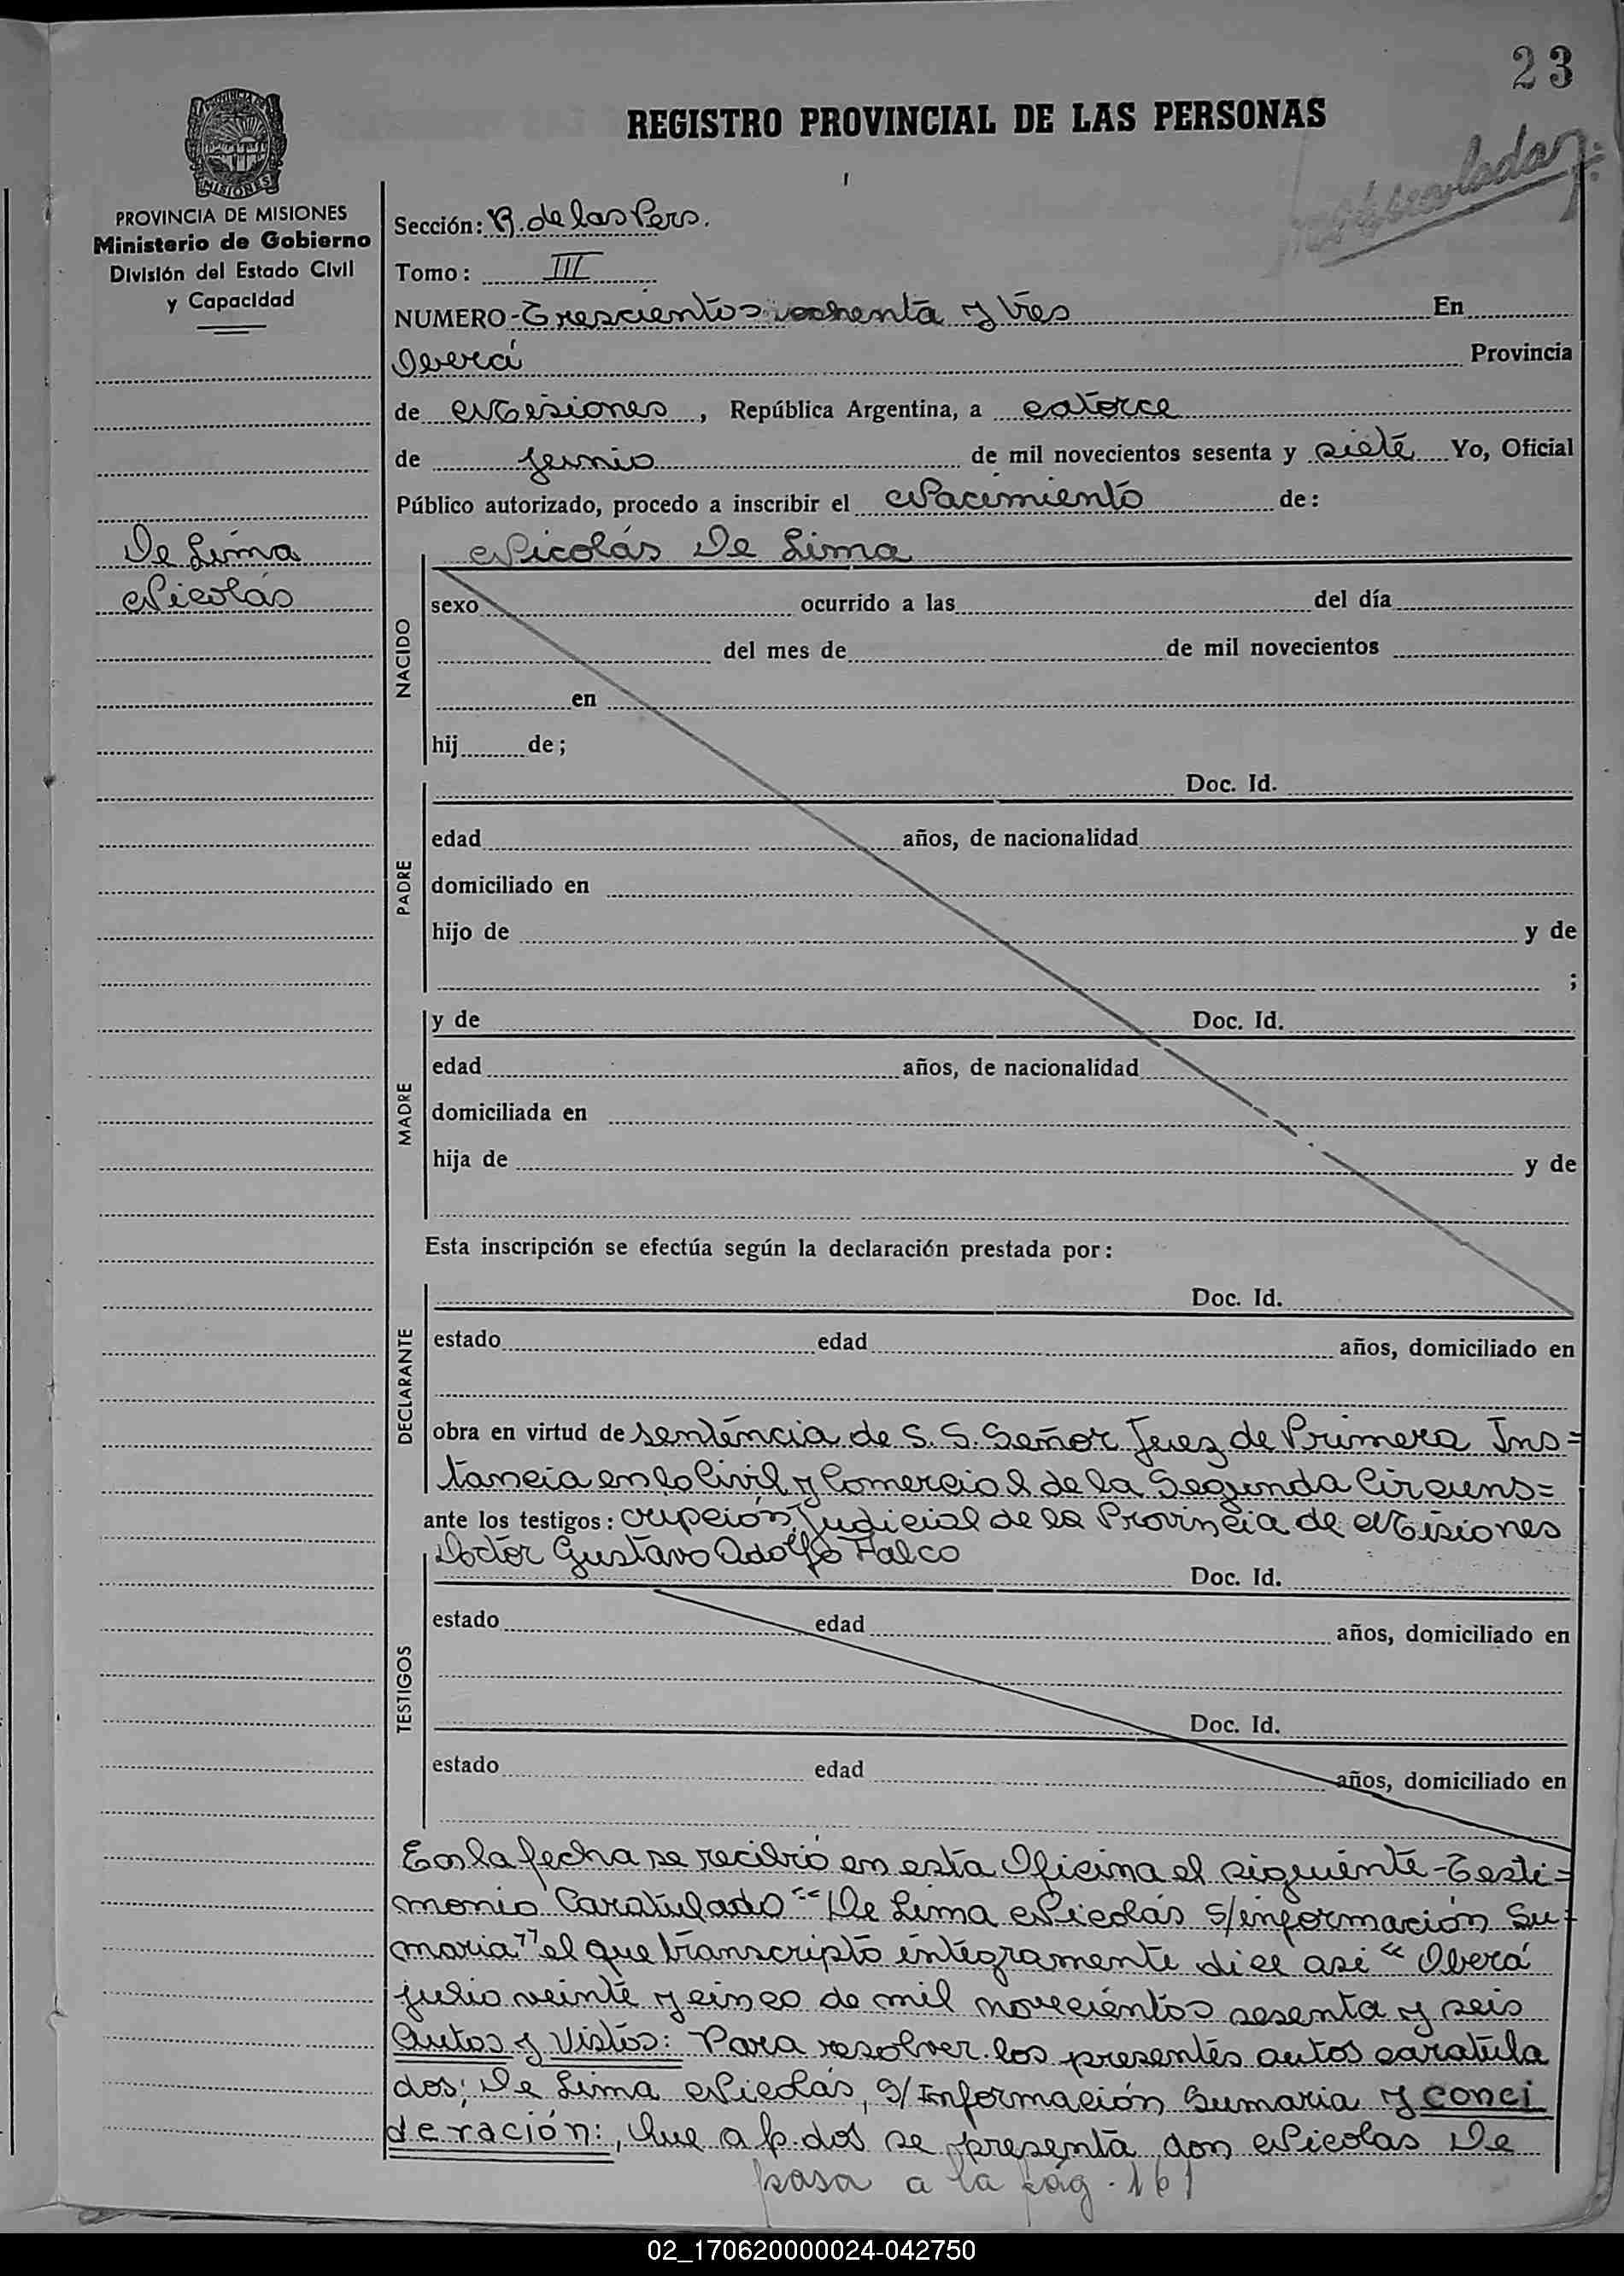 23
REGISTRO PROVINCIAL DE LAS PERSONAS
MISIONES
PROVINCIA DE MISIONES
Ministerio de Gobierno
División del Estado Civil
y Capacidad
De Lima
Nicolás
Sección: R. de las Pers.
Tomo: III
NUMERO - Trescientos ochenta y tres En
Oberá Provincia
de Misiones, República Argentina, a catorce
de junio de mil novecientos sesenta y siete Yo, Oficial
Público autorizado, procedo a inscribir el Nacimiento de:
Nicolás De Lima
NACIDO
sexo ocurrido a las del día
del mes de de mil novecientos
en
hij de;
PADRE
Doc. Id.
edad años, de nacionalidad
domiciliado en
hijo de y de
;
MADRE
y de Doc. Id.
edad años, de nacionalidad
domiciliada en
hija de y de
Esta inscripción se efectúa según la declaración prestada por:
DECLARANTE
Doc. Id.
estado edad años, domiciliado en
obra en virtud de sentencia de S. S. Señor Juez de Primera Ins=
tancia en lo Civil y Comercial de la Segunda Circuns=
ante los testigos: cripción Judicial de la Provincia de Misiones
Doctor Gustavo Adolfo Falco
TESTIGOS
Doc. Id.
estado edad años, domiciliado en
Doc. Id.
estado edad años, domiciliado en
En la fecha se recibió en esta Oficina el siguiente - Testi=
monio Caratulado "De Lima Nicolás S/información Su=
maria" el que transcripto íntegramente dice así "Oberá
julio veinte y cinco de mil novecientos sesenta y seis
Autos y Vistos: Para resolver los presentes autos caratula
dos; De Lima Nicolás, S/Información Sumaria y conci
deración:, Que a f. dos se presenta don Nicolas De
pasa a la pág. 161
02_170620000024-042750